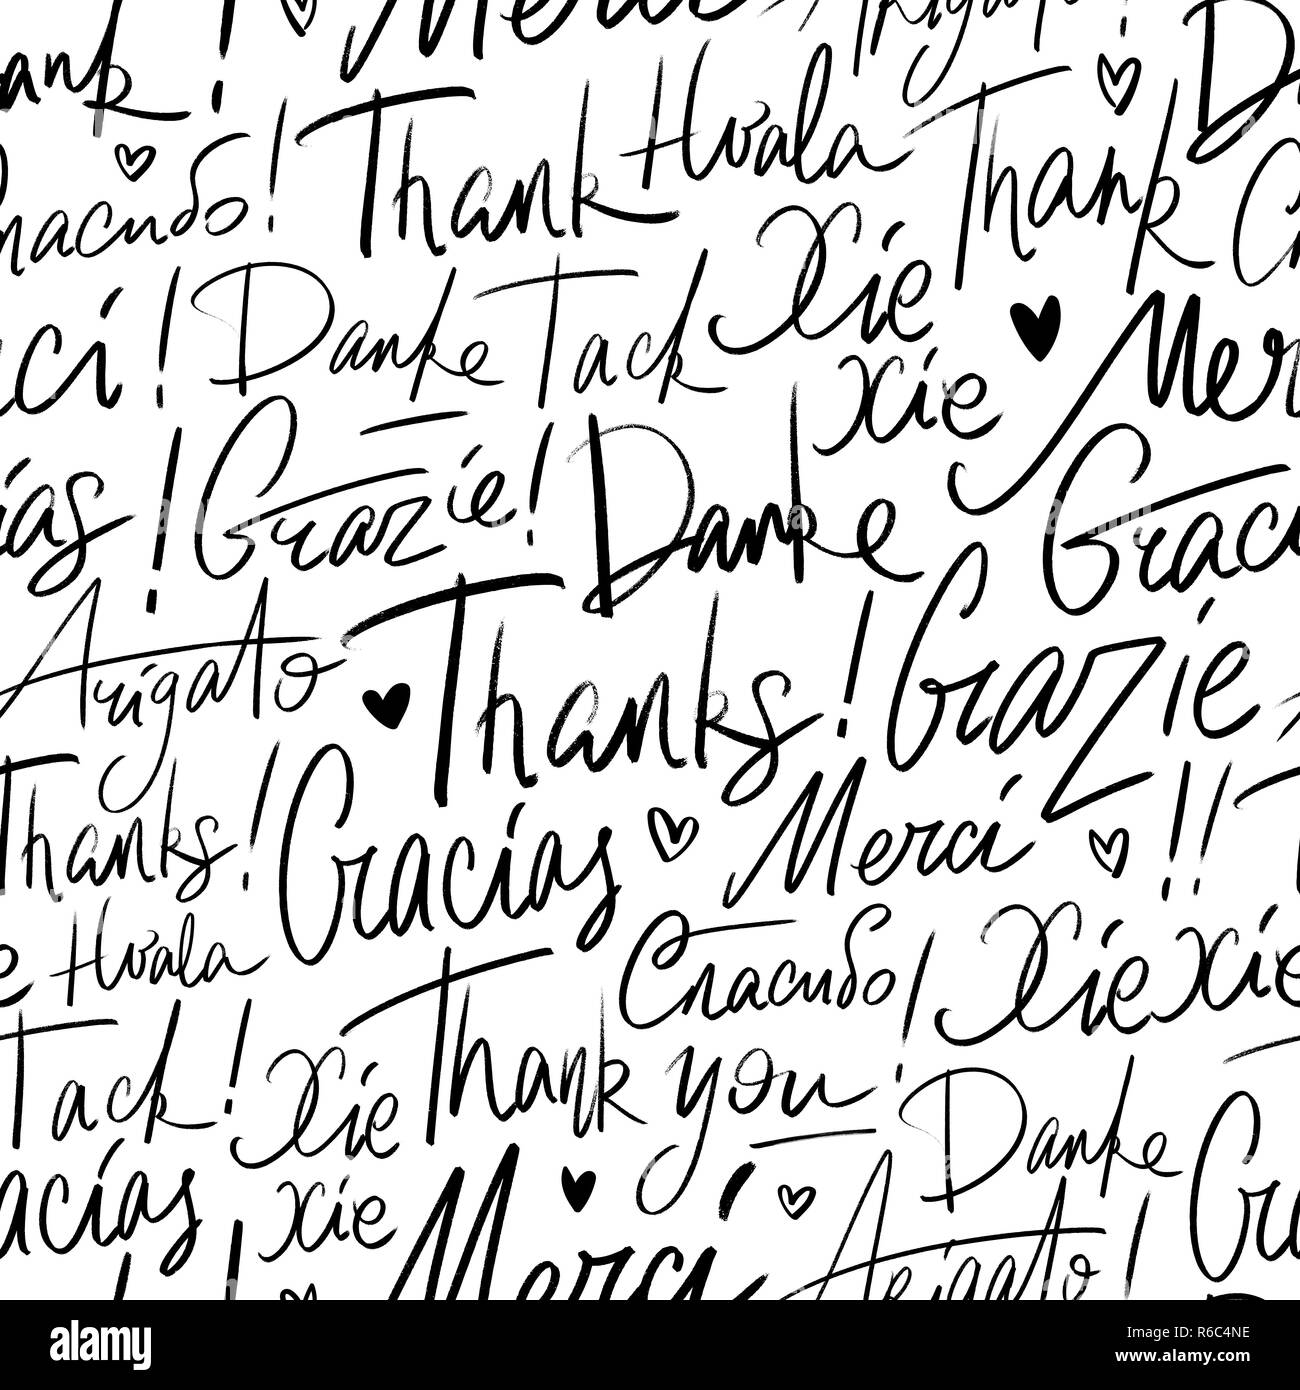 Thank ! Merci Arigato !
Спасибо! Thank Hvala Thank
Merci! Danke Tack Xie Xie Merci
Gracias! Grazie! Danke Gracias
Arigato Thanks! Grazie
Thanks! Gracias Merci !!
Hvala Спасибо! Xie Xie
Tack! Xie Xie Thank you Danke
Gracias Merci Arigato!
alamy
alamy
Image ID: R6C4NE
www.alamy.com